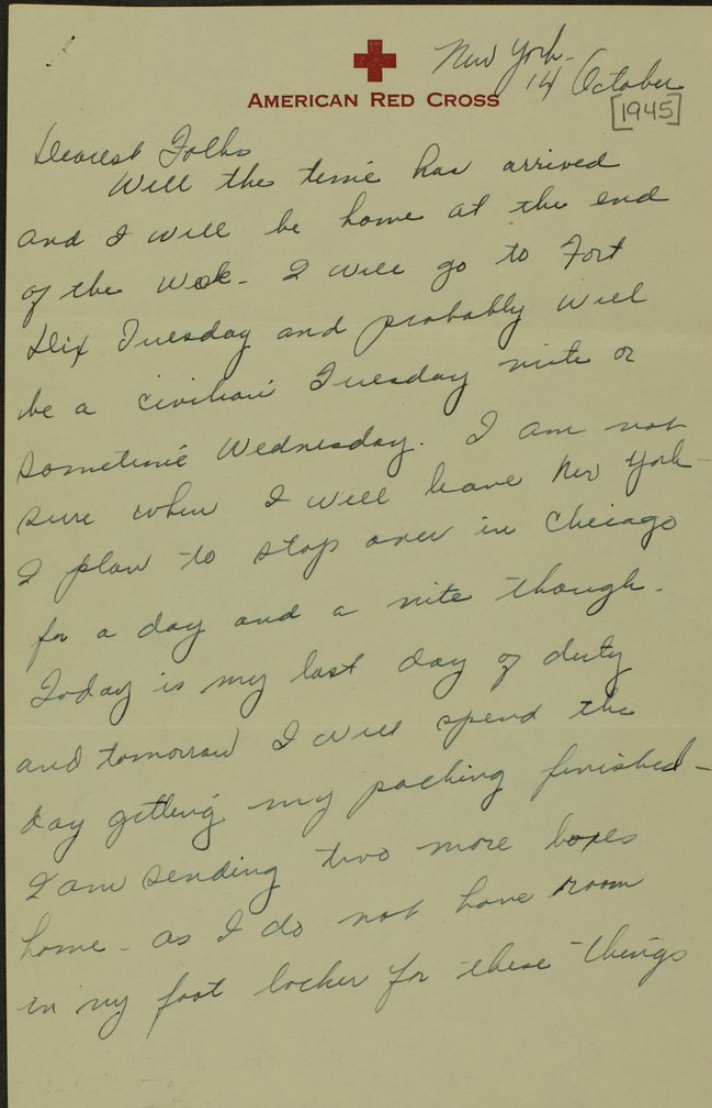 New York -
14 October
AMERICAN RED CROSS
[1945]
Dearest Folks
Well the time has arrived
and I will be home at the end
of the week - I will go to Fort
Dix Tuesday and probably will
be a civilian Tuesday nite or
sometime Wednesday. I am not
sure when I will leave New York -
I plan to stop over in Chicago
for a day and a nite though.
Today is my last day of duty
and tomorrow I will spend the
day getting my packing finished -
I am sending two more boxes
home - as I do not have room
in my foot locker for these things